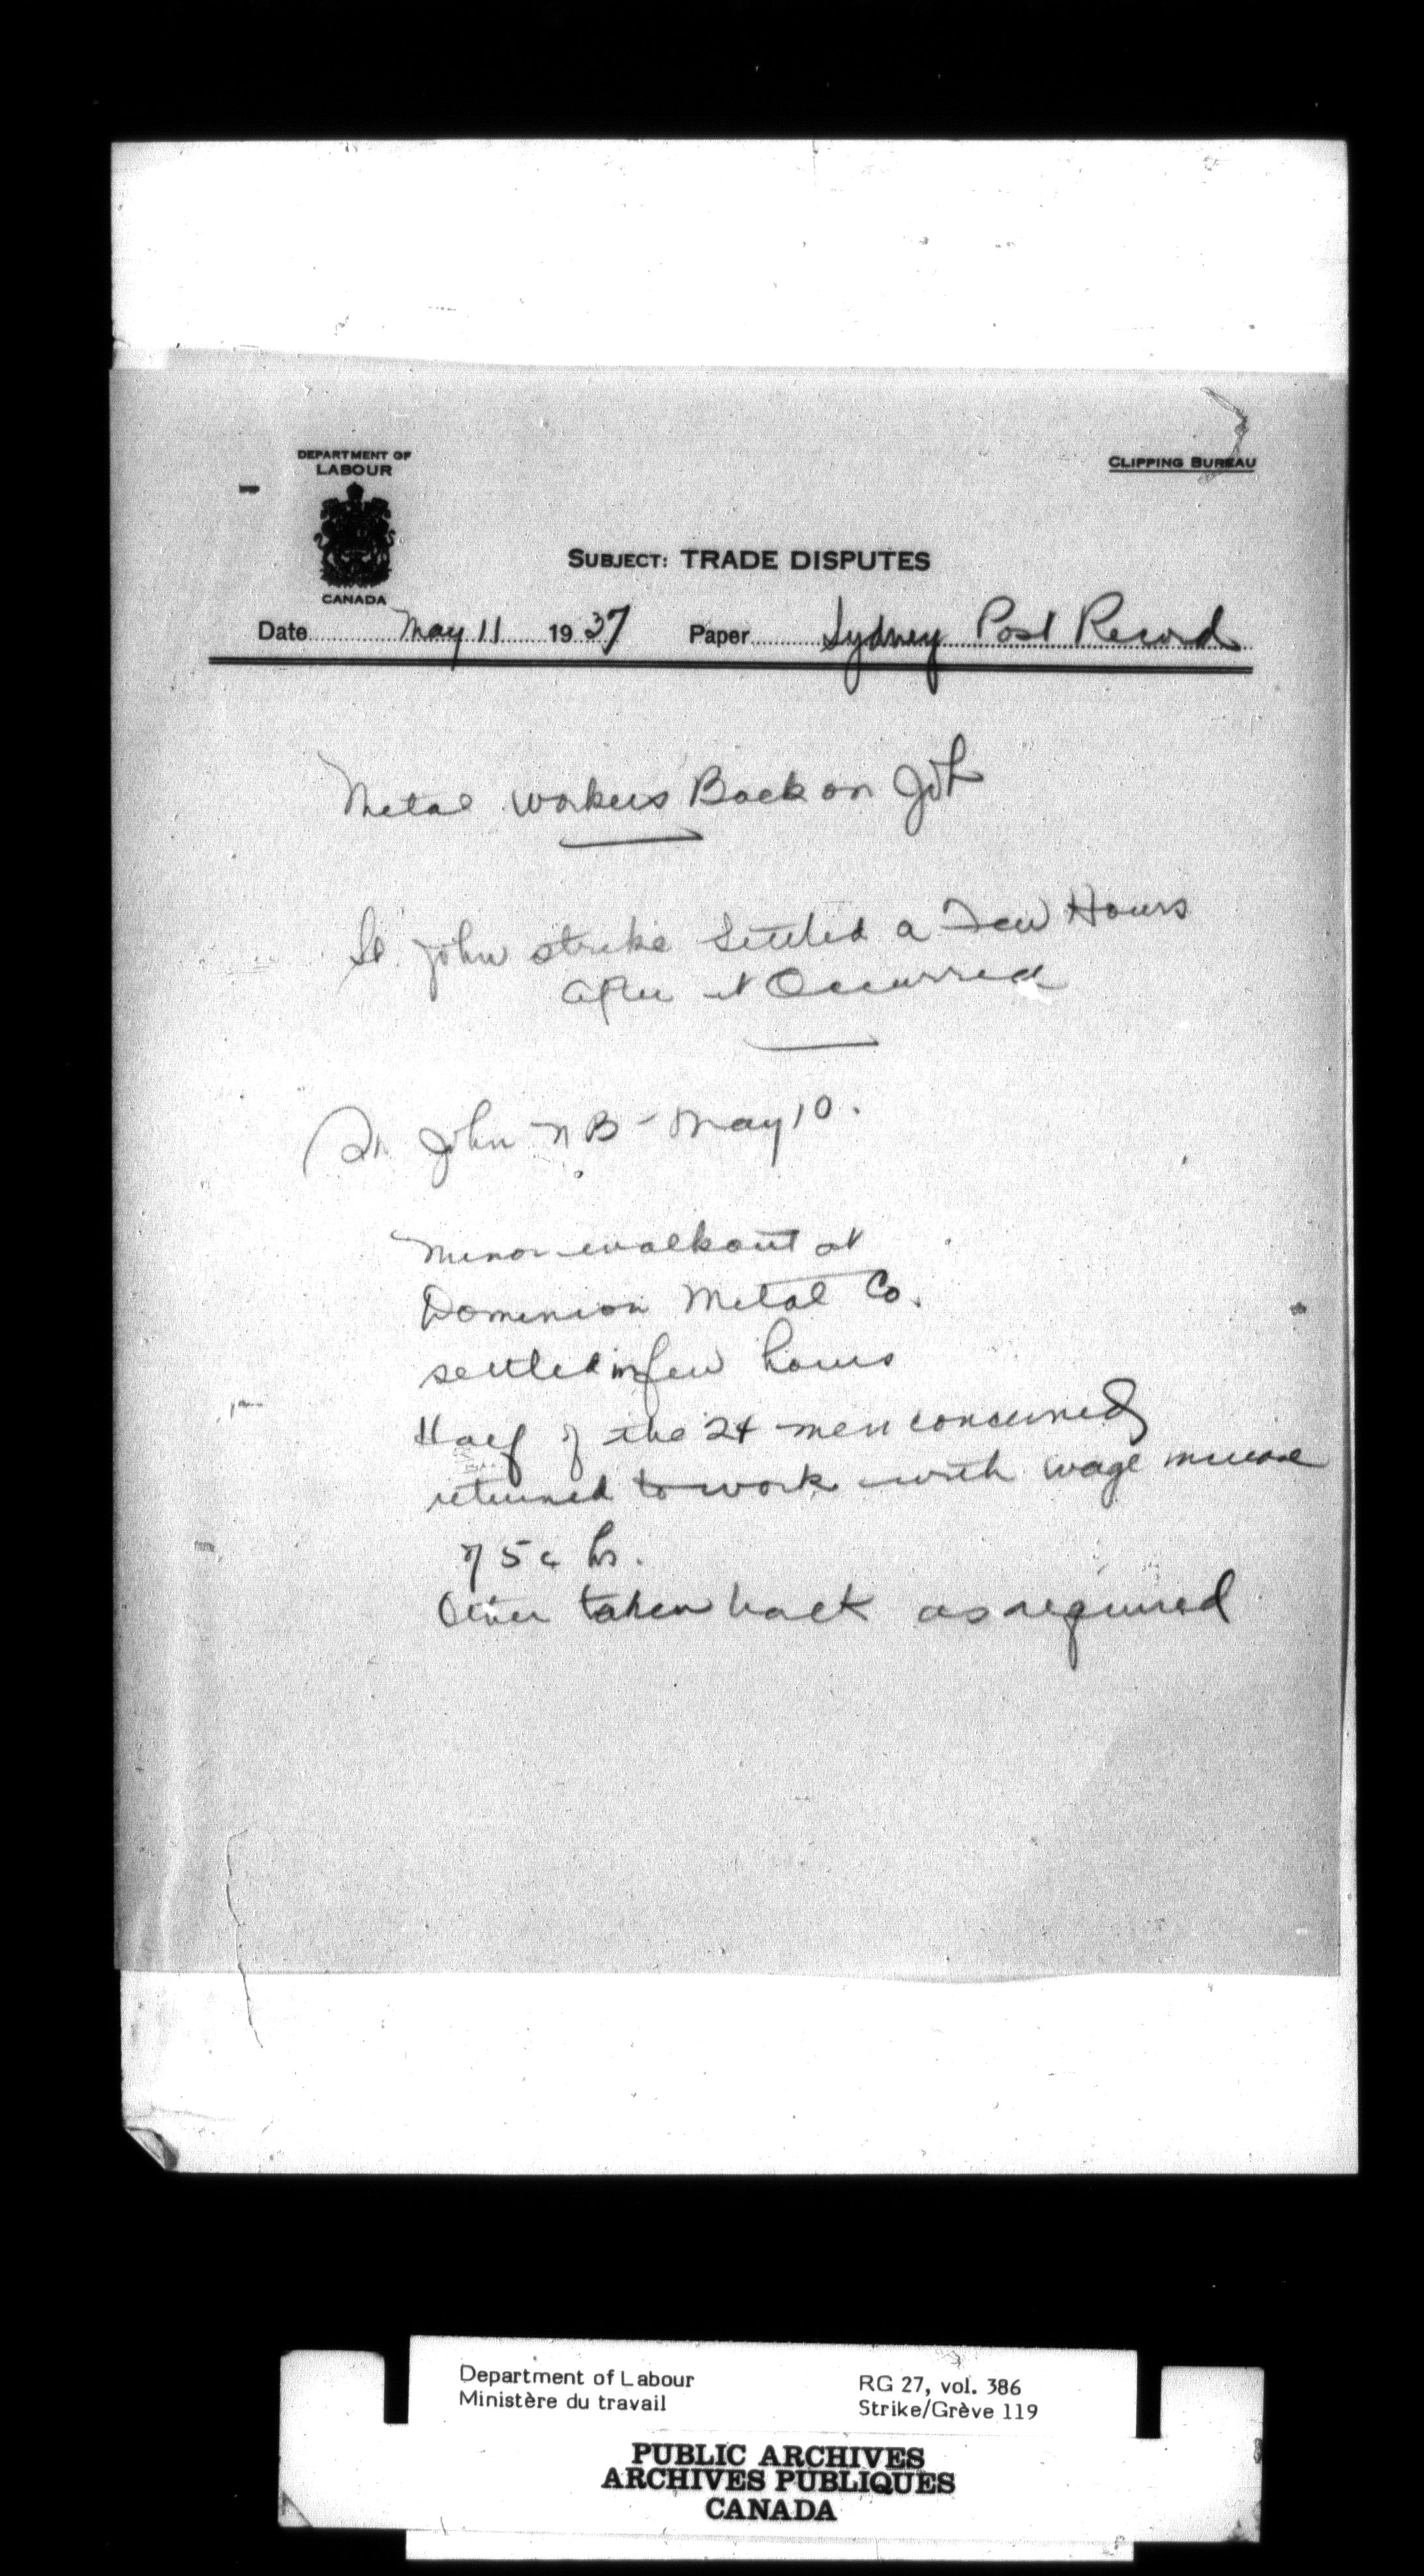 DEPARTMENT OF
LABOUR
CANADA
CLIPPING BUREAU
SUBJECT: TRADE DISPUTES
Date May 11 1937 Paper Sydney Post Record
Metal workers Back on Job
St. John strike Settled a Few Hours
after it Occurred
St. John N B - May 10.
Minor walkout at
Dominion Metal Co.
settled in few hours
Half of the 24 men concerned
returned to work with wage increase
of 5c hr.
Other taken back as required
Department of Labour
Ministère du travail
RG 27, vol. 386
Strike/Grève 119
PUBLIC ARCHIVES
ARCHIVES PUBLIQUES
CANADA